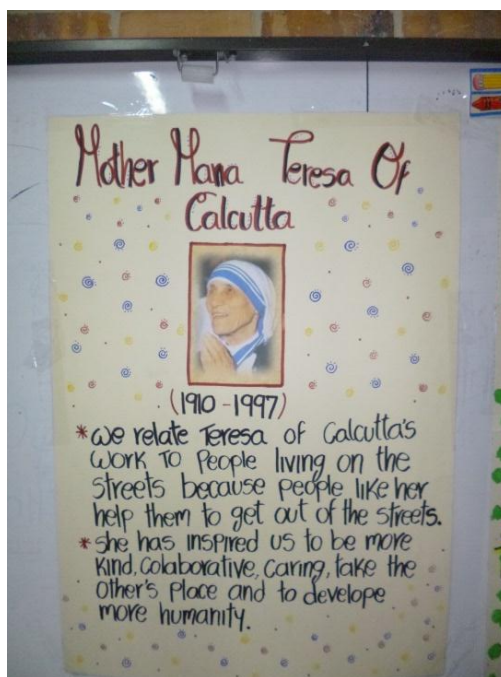 Mother Maria Teresa Of
Calcutta
(1910-1997)
* We relate Teresa of Calcutta's
work to People living on the
streets because people like her
help them to get out of the streets.
* She has inspired us to be more
kind, colaborative, caring, take the
other's place and to develope
more humanity.